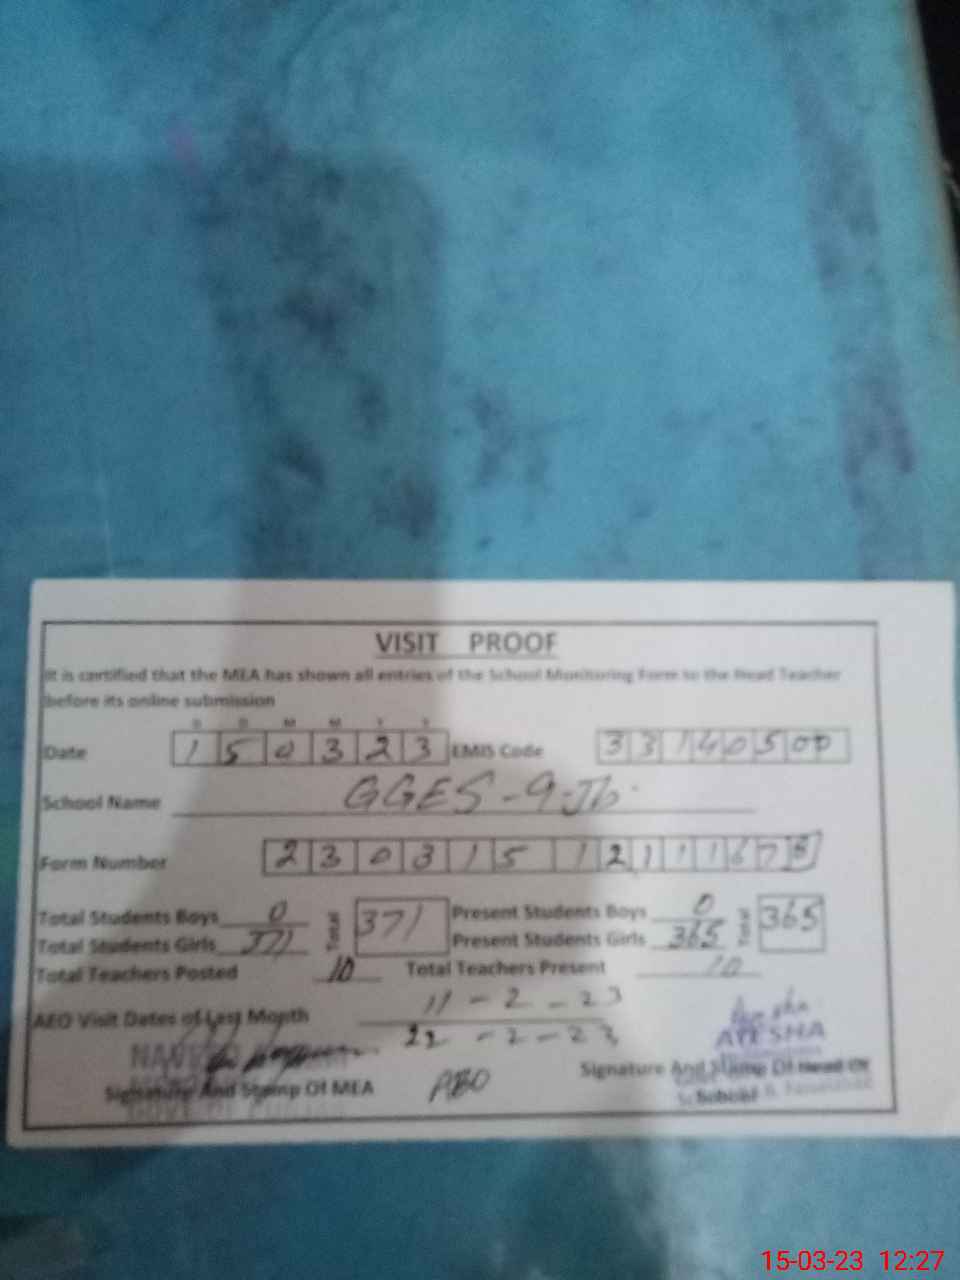 VISIT PROOF
It is certified that the MEA has shown all entries of the School Monitoring Form to the Head Teacher
before its online submission
D D M M Y Y
Date 1 5 0 3 2 3 EMIS Code 3 3 1 4 0 5 0 0
School Name GGES-9-Jb
Form Number 2 3 0 3 1 5 1 2 1 1 1 6 7 8
Total Students Boys 0 Total 371 Present Students Boys 0 Total 365
Total Students Girls 371 Present Students Girls 365
Total Teachers Posted 10 Total Teachers Present 10
AEO Visit Dates of Last Month 11-2-23
22-2-23
AYESHA
Signature And Stamp Of MEA
Signature And Stamp Of Head Of
School
15-03-23 12:27